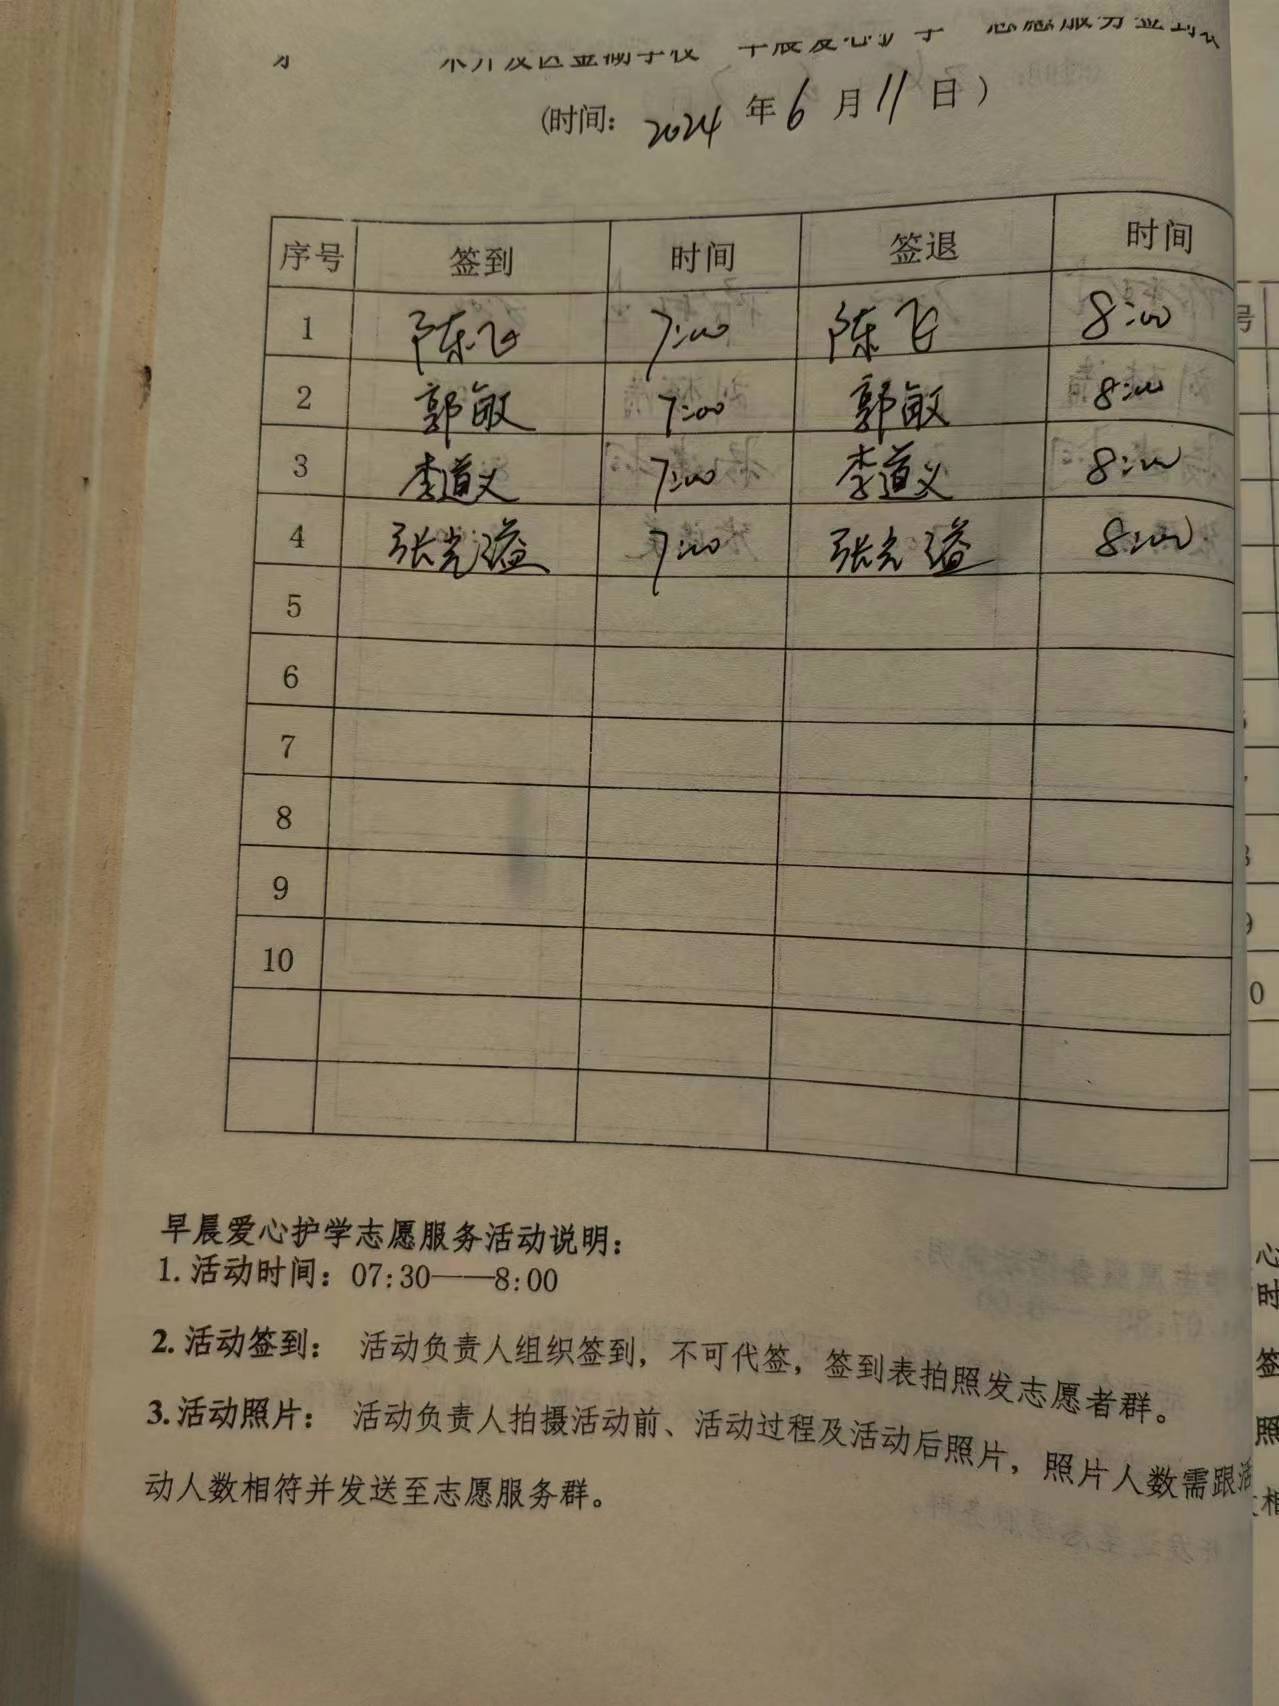 (时间: 2024 年 6 月 11 日)
序号 签到 时间 签退 时间
1 陈飞 7:00 陈飞 8:00
2 郭敏 7:00 郭敏 8:00
3 李道义 7:00 李道义 8:00
4 张光溢 7:00 张光溢 8:00
5
6
7
8
9
10
早晨爱心护学志愿服务活动说明:
1. 活动时间: 07:30——8:00
2. 活动签到: 活动负责人组织签到, 不可代签, 签到表拍照发志愿者群。
3. 活动照片: 活动负责人拍摄活动前、活动过程及活动后照片, 照片人数需跟活
动人数相符并发送至志愿服务群。